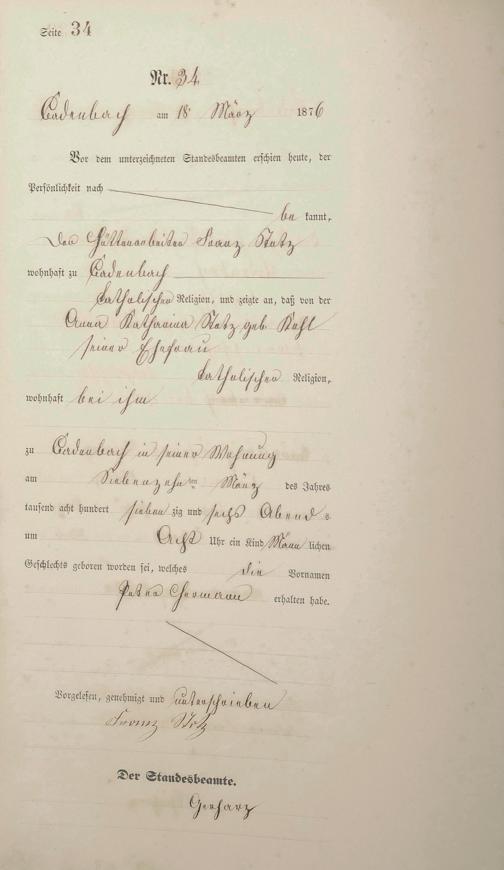 Seite 34
Nr. 34
Cadenbach am 18 März 1876
Vor dem unterzeichneten Standesbeamten erschien heute, der
Persönlichkeit nach
be kannt,
Der Hüttenarbeiter Franz Stotz
wohnhaft zu Cadenbach
katholischer Religion, und zeigte an, daß von der
Anna Katharina Stotz geb. Kohl
seiner Ehefrau
katholischer Religion,
wohnhaft bei ihm
zu Cadenbach in seiner Wohnung
am Siebenzehnten März des Jahres
tausend acht hundert sieben zig und sechs Abend s
um Acht Uhr ein Kind Männ lichen
Geschlechts geboren worden sei, welches die Vornamen
Peter Hermann erhalten habe.
Vorgelesen, genehmigt und unterschrieben
Franz Stotz
Der Standesbeamte.
Gerharz